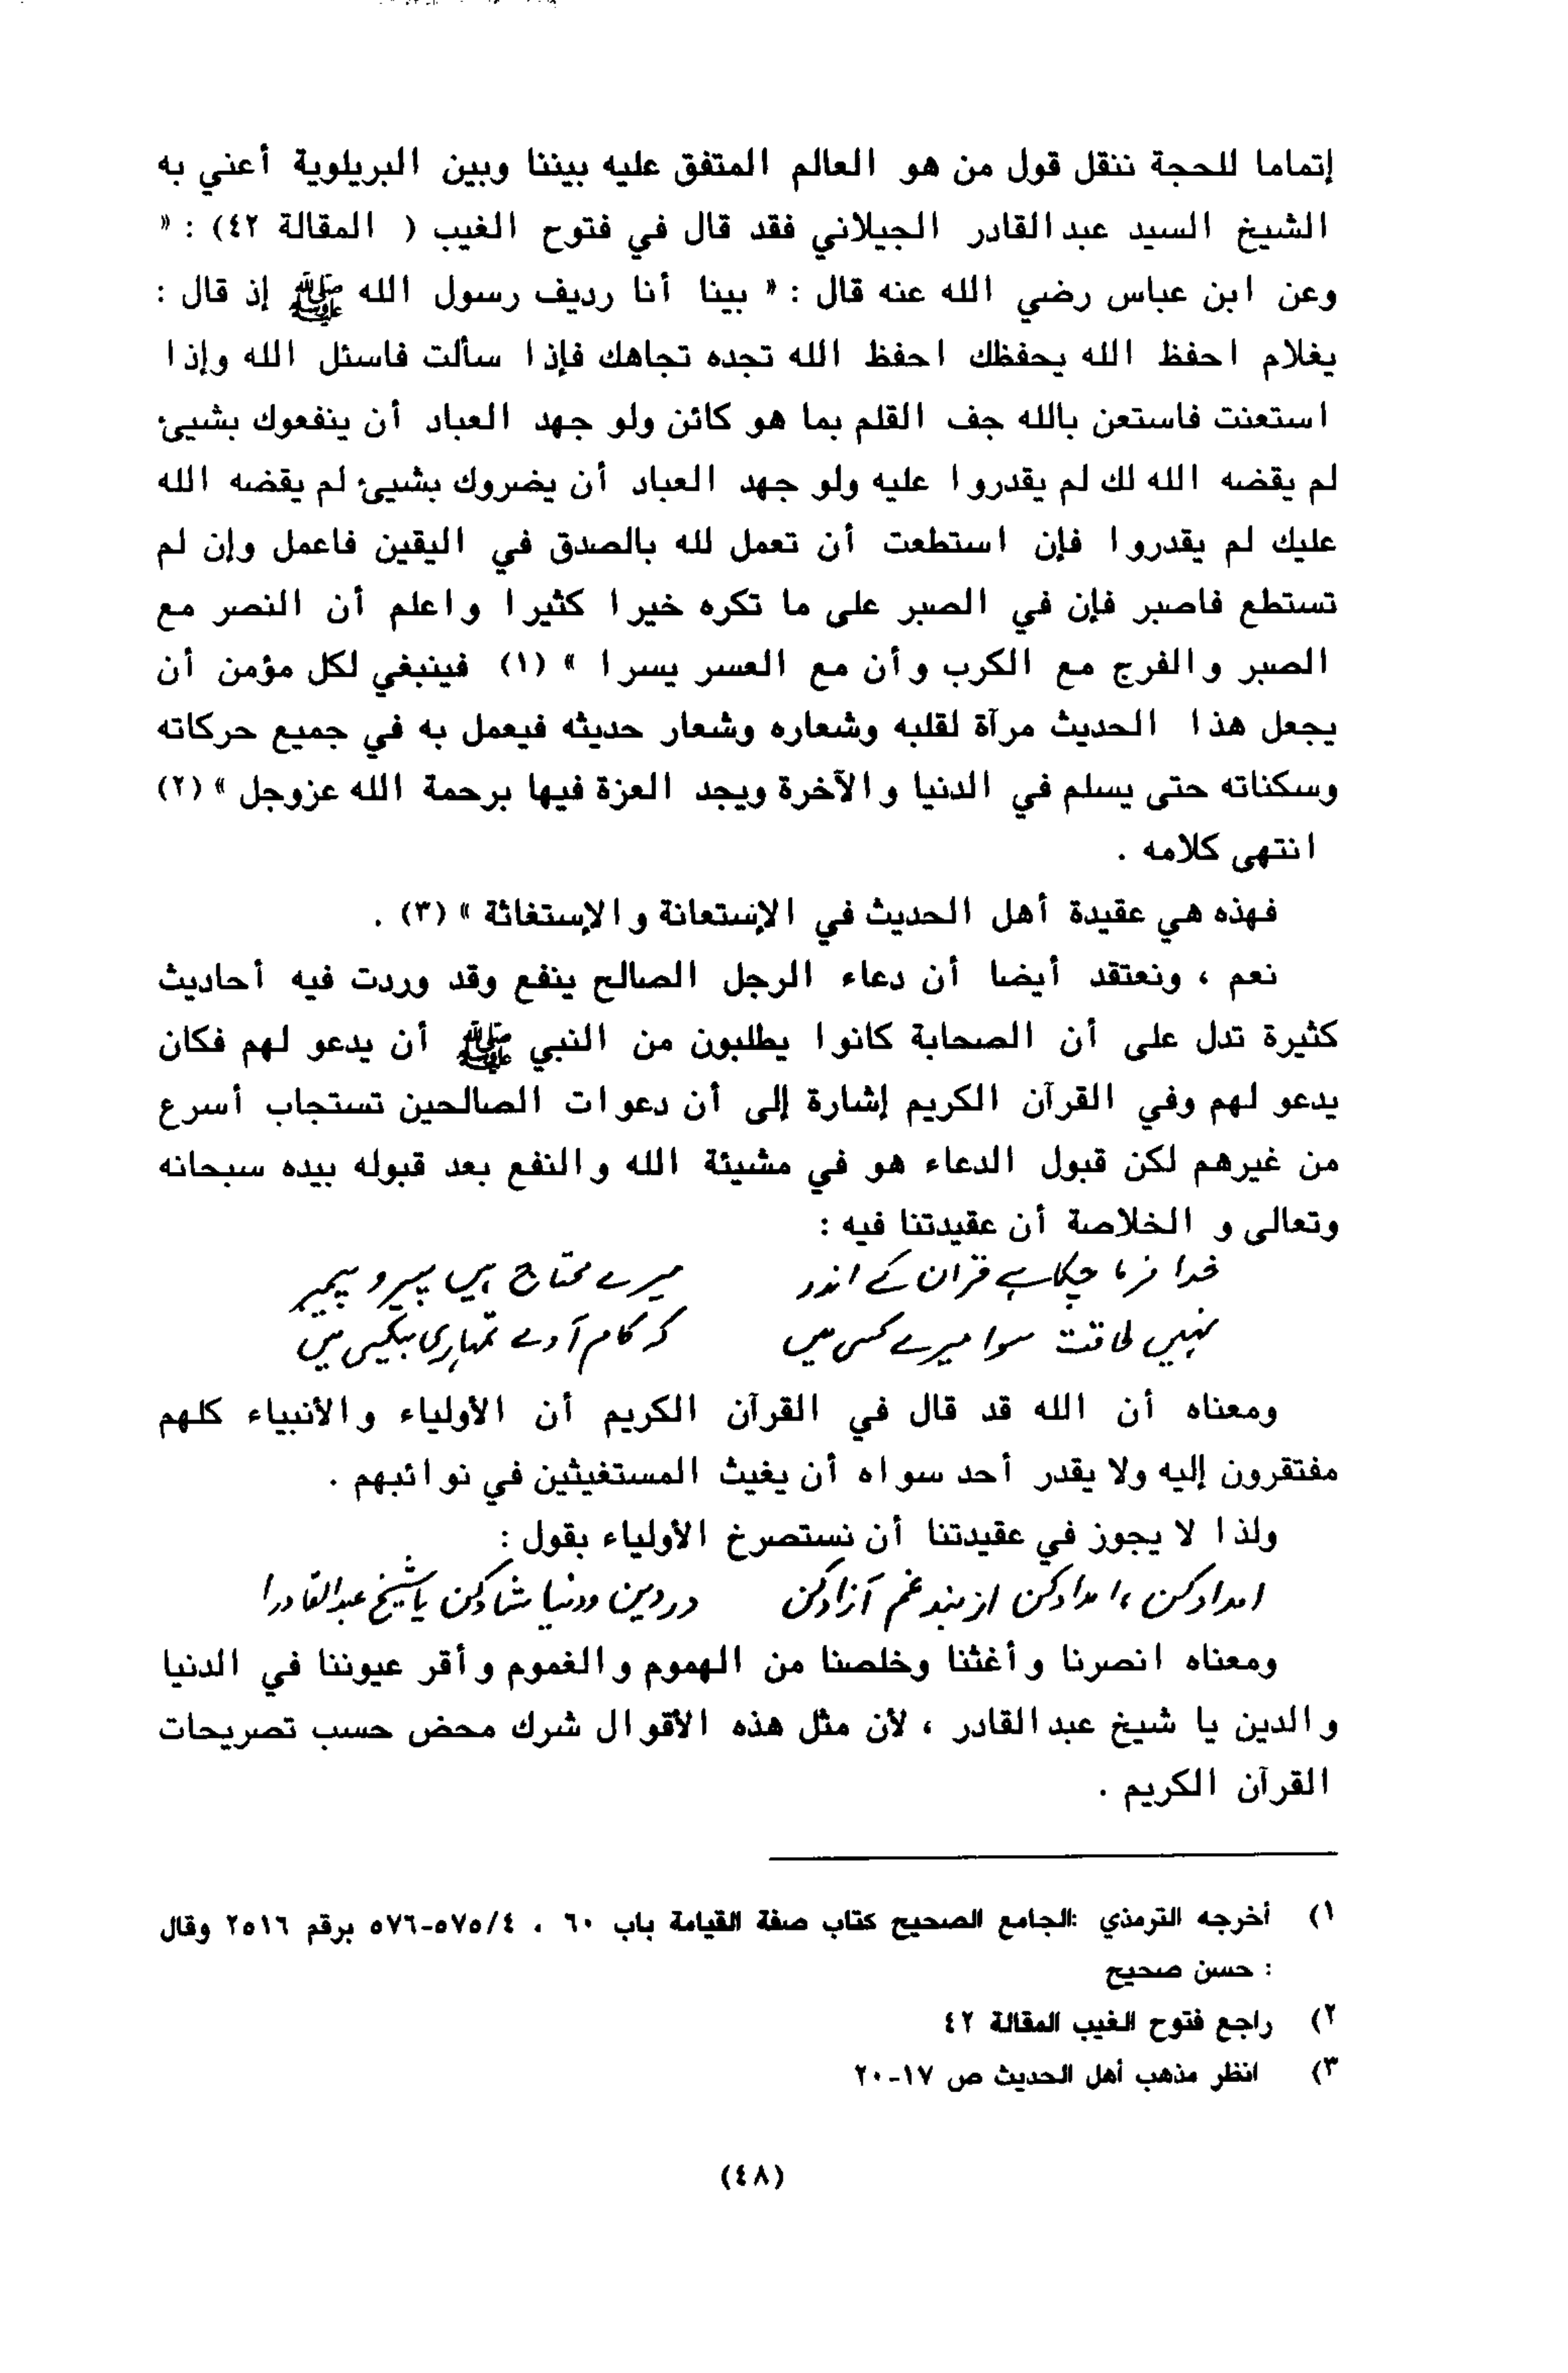 إتماما للحجة ننقل قول من هو العالم المتفق عليه بيننا وبين البريلوية أعني به
الشيخ السيد عبدالقادر الجيلاني فقد قال في فتوح الغيب ( المقالة ٤٢) : «
وعن ابن عباس رضي الله عنه قال : « بينا أنا رديف رسول الله ﷺ إذ قال :
يغلام احفظ الله يحفظك احفظ الله تجده تجاهك فإذا سألت فاسئل الله وإذا
استعنت فاستعن بالله جف القلم بما هو كائن ولو جهد العباد أن ينفعوك بشيئ
لم يقضه الله لك لم يقدروا عليه ولو جهد العباد أن يضروك بشيئ لم يقضه الله
عليك لم يقدروا فإن استطعت أن تعمل لله بالصدق في اليقين فاعمل وإن لم
تستطع فاصبر فإن في الصبر على ما تكره خيرا كثيرا واعلم أن النصر مع
الصبر والفرج مع الكرب وأن مع العسر يسرا » (١) فينبغي لكل مؤمن أن
يجعل هذا الحديث مرآة لقلبه وشعاره وشعار حديثه فيعمل به في جميع حركاته
وسكناته حتى يسلم في الدنيا والآخرة ويجد العزة فيها برحمة الله عزوجل » (٢)
انتهى كلامه .
فهذه هي عقيدة أهل الحديث في الإستعانة والإستغاثة » (٣) .
نعم ، ونعتقد أيضا أن دعاء الرجل الصالح ينفع وقد وردت فيه أحاديث
كثيرة تدل على أن الصحابة كانوا يطلبون من النبي ﷺ أن يدعو لهم فكان
يدعو لهم وفي القرآن الكريم إشارة إلى أن دعوات الصالحين تستجاب أسرع
من غيرهم لكن قبول الدعاء هو في مشيئة الله والنفع بعد قبوله بيده سبحانه
وتعالى و الخلاصة أن عقيدتنا فيه :
خدا فرما چکا ہے قرآن کے اندر میرے محتاج ہیں پیر و پیمبر
نہیں طاقت سوا میرے کسی میں کہ کام آوے تمہاری بیکسی میں
ومعناه أن الله قد قال في القرآن الكريم أن الأولياء والأنبياء كلهم
مفتقرون إليه ولا يقدر أحد سواه أن يغيث المستغيثين في نوائبهم .
ولذا لا يجوز في عقيدتنا أن نستصرخ الأولياء بقول :
امداد کن امداد کن از بند غم آزاد کن در دین و دنیا شاد کن یا شیخ عبدالقادرا
ومعناه انصرنا وأغثنا وخلصنا من الهموم والغموم وأقر عيوننا في الدنيا
والدين يا شيخ عبدالقادر ، لأن مثل هذه الأقوال شرك محض حسب تصريحات
القرآن الكريم .
١) أخرجه الترمذي :الجامع الصحيح كتاب صفة القيامة باب ٦٠ ، ٤/٥٧٥-٥٧٦ برقم ٢٥١٦ وقال
: حسن صحيح
٢) راجع فتوح الغيب المقالة ٤٢
٣) انظر مذهب أهل الحديث ص ١٧-٢٠
(٤٨)